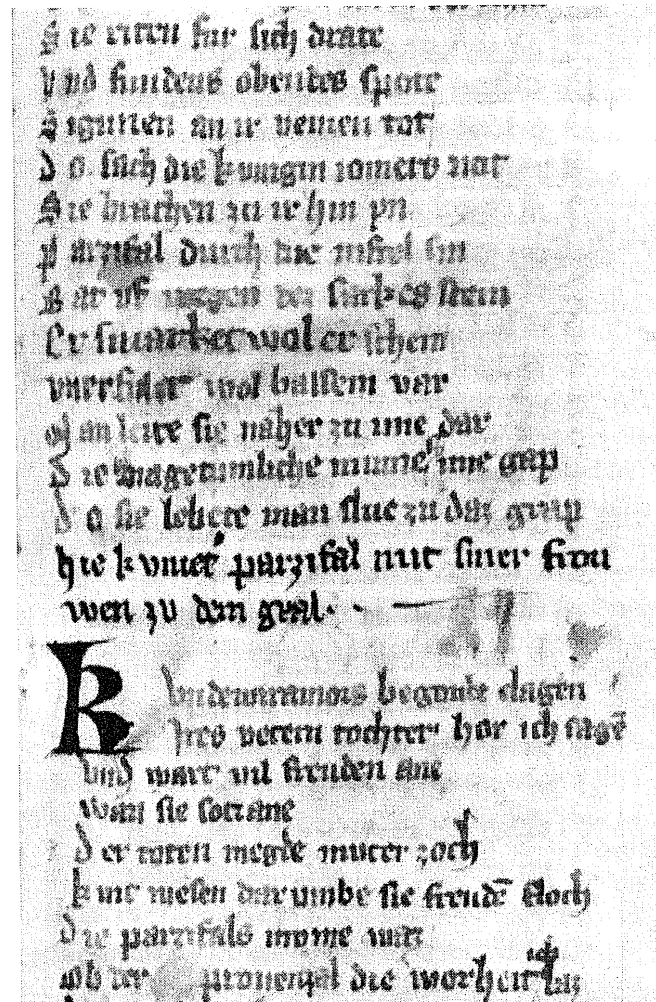 Sie riten fur sich drate
Vnd fundens obendes spote
Sigunen an ir venien tot
Do sach die kungin iomers not
Sie brachen zu ir hin yn
Parzifal durch die niftel sin
Bat vf wegen des sarkes stein
Er smarket wol er schein
vnerfulet wol balsem var
Man leite sie naher zu ime dar
Die magetumliche minne ime gap
Do sie lebete man sluc zu daz grap
hie kvmet parzifal mit siner frou
wen zv dem gral.
Kvndewiramors begonde clagen
Ires vetern tochter hor ich sagē
Vnd wart vil freuden ane
Wan sie soczane
Der toten megde muter zoch
Kint wesen dar vmbe sie freudē floch
Die parzifals mvme was
Ob der prouenzal die worheit las